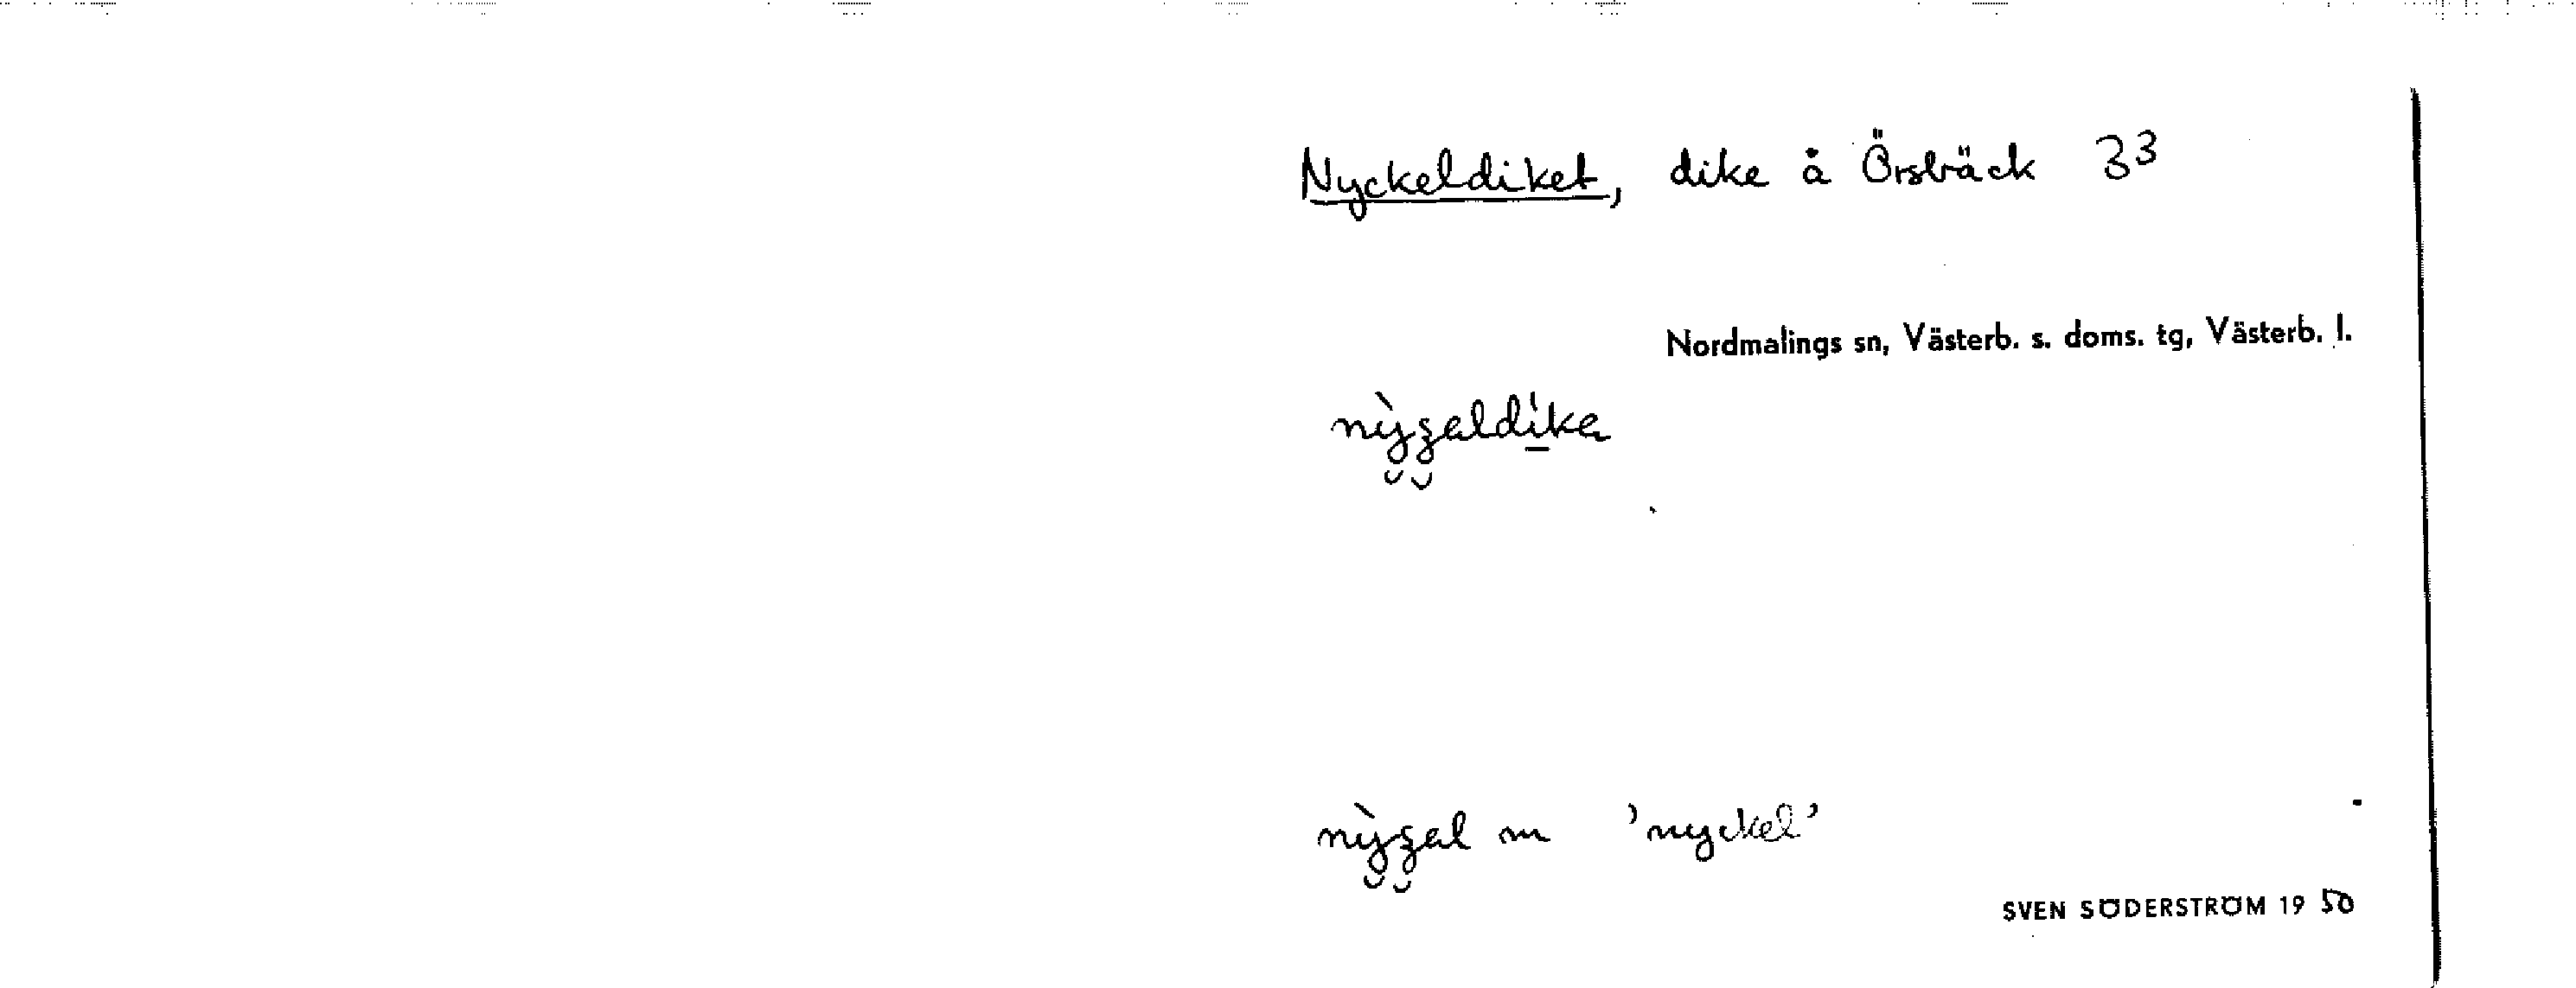 Nyckeldiket, dike å Örsbäck 33
Nordmalings sn, Västerb. s. doms. tg, Västerb. l.
nỳʒ̮aldi̱ka
nỳʒ̮al m 'nyckel'
SVEN SÖDERSTRÖM 19 50